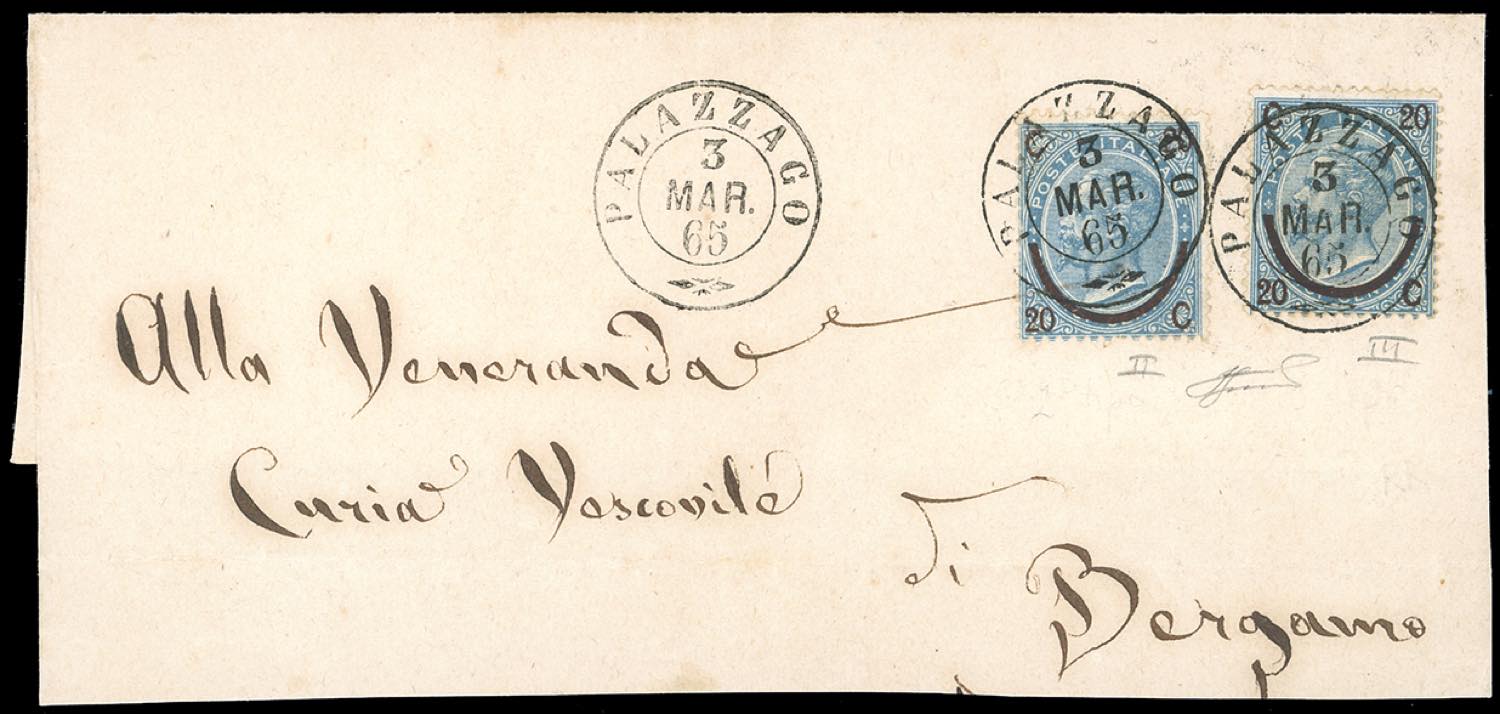 PALAZZAGO
3
MAR.
65
PALAZZAGO
3
MAR.
65
POSTE ITALIA
20 C
PALAZZAGO
3
MAR.
65
C 20
20 C
II
III
Alla Veneranda
Curia Vescovile
di
Bergamo